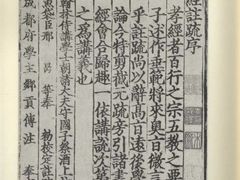 經註疏序
孝經者百行之宗五教之要
子述作垂範將來奧旨微言
乎註疏尚以辭高旨遠後學
論今特剪截元疏旁引諸書
經會合歸趣一依講說次第
為講義也
翰林侍講學士朝請大夫守國子祭酒上
勑校定註
成都府學主鄉貢傅注 奉